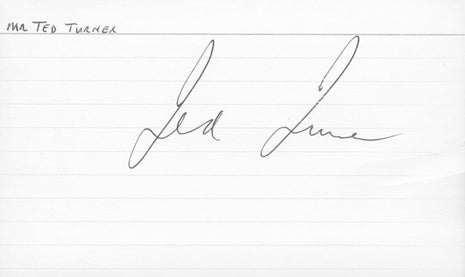 MR TED TURNER
Ted Turner